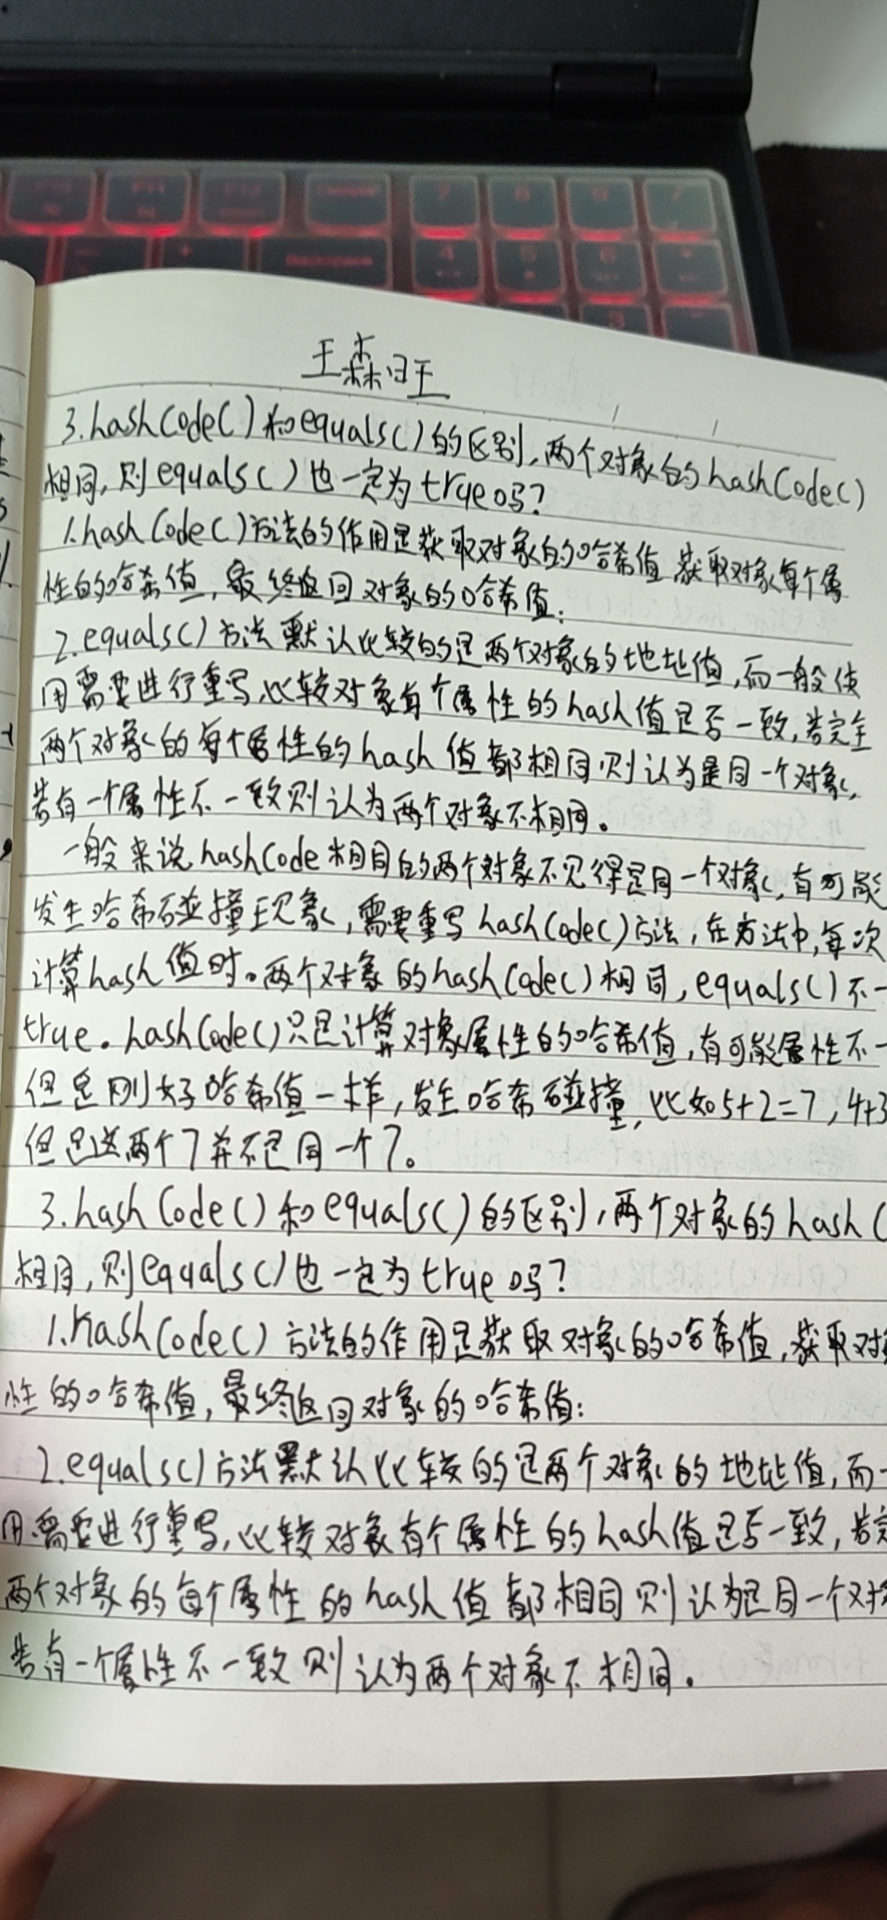 7
8
9
4
5
6
Backspace
3
王森旺
3.hashCode()和equals()的区别,两个对象的hashCode()
相同,则equals()也一定为true吗?
1.hashCode()方法的作用是获取对象的哈希值,获取对象每个属
性的哈希值,最终返回对象的哈希值;
2.equals()方法默认比较的是两个对象的地址值,而一般使
用需要进行重写,比较对象每个属性的hash值是否一致,若完全
两个对象的每个属性的hash值都相同则认为是同一个对象,
若有一个属性不一致则认为两个对象不相同。
一般来说hashCode相同的两个对象不见得是同一个对象,有可能
发生哈希碰撞现象,需要重写hashCode()方法,在方法中,每次
计算hash值时。两个对象的hashCode()相同,equals()不一
true。hashCode()只是计算对象属性的哈希值,有可能属性不一
但是刚好哈希值一样,发生哈希碰撞,比如5+2=7,4+3
但是这两个7并不是同一个7。
3.hashCode()和equals()的区别,两个对象的hashC
相同,则equals()也一定为true吗?
1.hashCode()方法的作用是获取对象的哈希值,获取对
性的哈希值,最终返回对象的哈希值;
2.equals()方法默认比较的是两个对象的地址值,而一
用需要进行重写,比较对象有个属性的hash值是否一致,若完
两个对象的每个属性的hash值都相同则认为是同一个对
若有一个属性不一致则认为两个对象不相同。